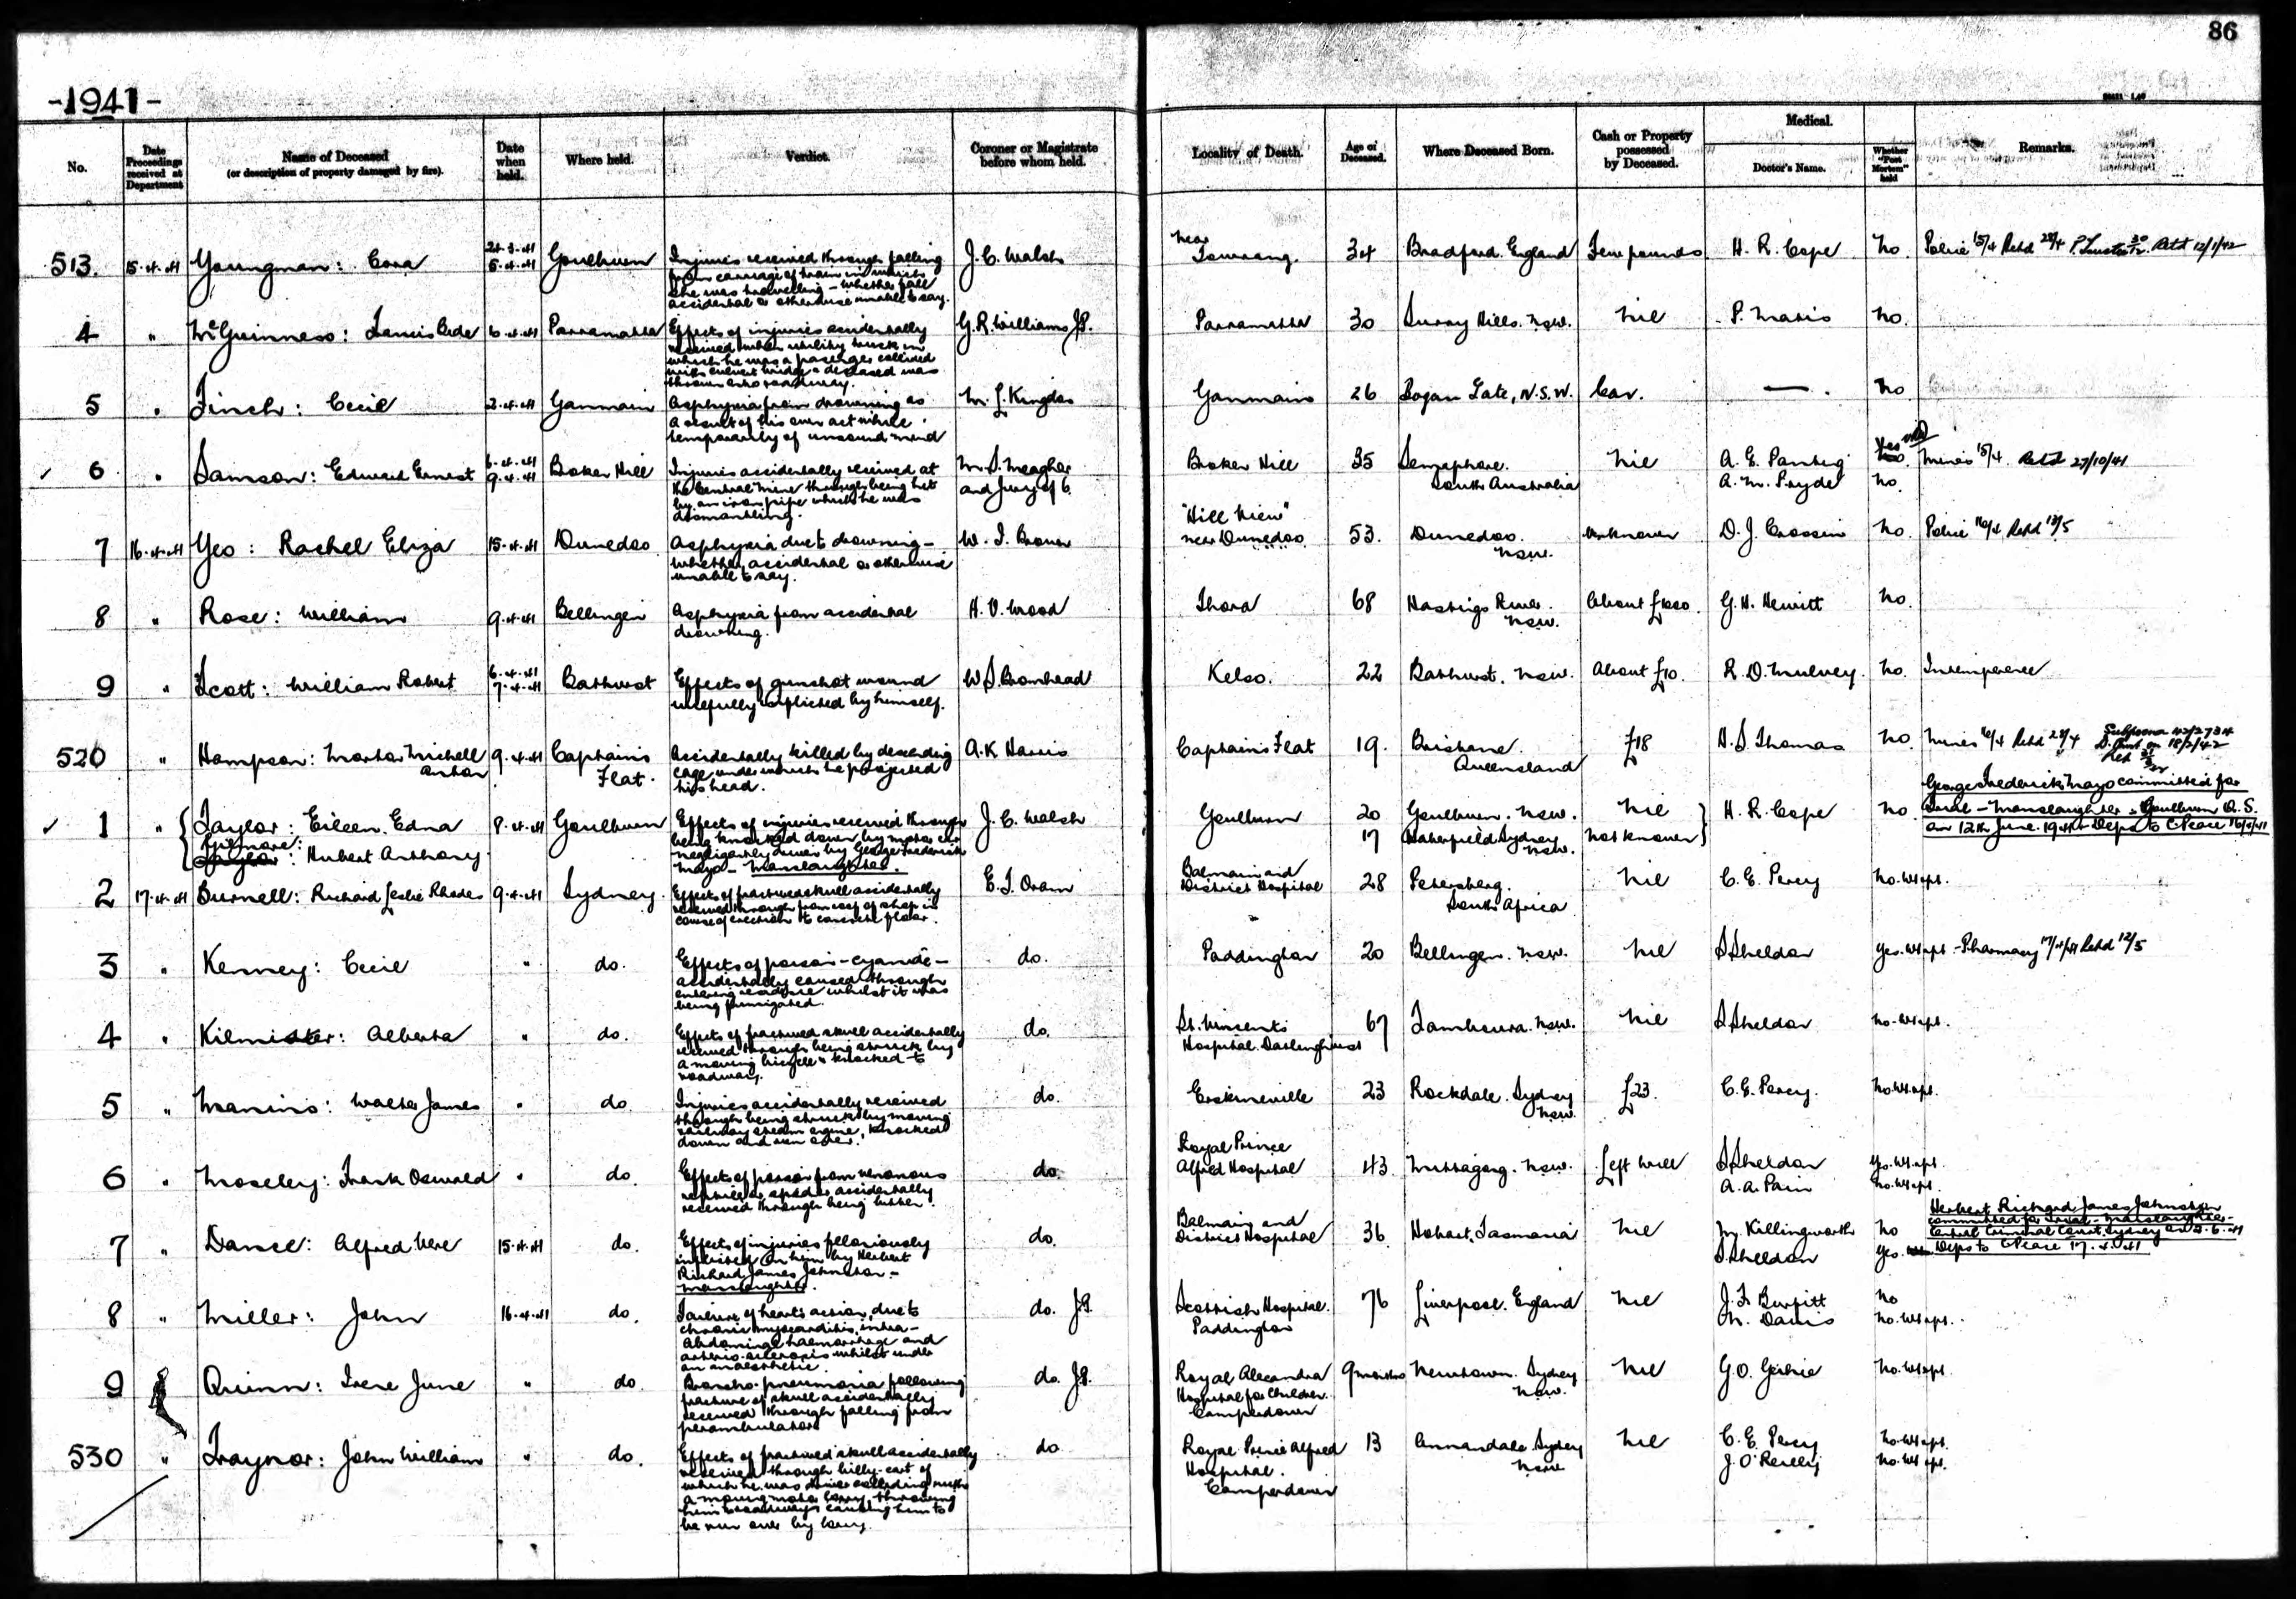 86
-1941-
No.
Date Proceedings received at Department
Name of Deceased
(or description of property damaged by fire).
Date when held.
Where held.
Verdict.
Coroner or Magistrate before whom held.
Locality of Death.
Age of Deceased.
Where Deceased Born.
Cash or Property possessed by Deceased.
Medical.
Doctor's Name.
Whether "Post Mortem" held
Remarks.
513 15.4.41 Youngman: Cora 5.4.41 Goulburn
Injuries received through falling
from carriage of train in which
she was travelling - whether fall
accidental or otherwise unable to say.
J. C. Walsh near Towrang 34 Bradford. England Few pounds H. R. Cope No. Police 15/4 Retd
4 " McGuinness: Francis Bede 6.4.41 Parramatta
Effects of injuries accidentally
received when utility truck in
which he was a passenger collided
with culvert bridge & deceased was
thrown onto roadway.
G. R. Williams J.P. Parramatta 30 Surry Hills. NSW. Nil P. Maris No.
5 " Finch: Cecil 2.4.41 Ganmain
Asphyxia from drowning as
a result of his own act while
temporarily of unsound mind
Ganmain 26 Bogan Gate, N.S.W. Car. — No
6 " Samson: Edward Ernest 6.4.41 9.4.41 Broken Hill
Injuries accidentally received at
the Central mine through being hit
by an iron pipe which he was
dismantling.
Meagher and Jury of 6. Broken Hill 35 Semaphore. South Australia Nil A. M. Pryde Yes No. Mines 15/4. Retd 27/10/41
7 16.4.41 Yeo: Rachel Eliza 15.4.41 Dunedoo
Asphyxia due to drowning -
whether accidental or otherwise
unable to say.
"Hill View" near Dunedoo 53. Dunedoo. NSW. Unknown D. J. Crossin No. Police 16/4 Retd 13/5
8 " Rose: William 9.4.41 Bellingen
Asphyxia from accidental
drowning.
H. V. Wood Thora 68 Hastings River. NSW. About G. H. Hewitt No.
9 " Scott: William Robert 6.4.41 7.4.41 Bathurst
Effects of gunshot wound
wilfully inflicted by himself.
W S Bromhead Kelso. 22 Bathurst. NSW. About £10. R. D. Mulvey. No. Intemperance
520 " Hampson: 9.4.41 Captains Flat.
Accidentally killed by descending
cage under which he projected
his head.
A. K Harris Captains Flat 19. Brisbane. Queensland £18 H. S. Thomas No. Mines 16/4 Retd
1 " Taylor: Eileen Edna 8.4.41 Goulburn
Hubert Anthony
Effects of injuries received through
being knocked down by motor car
negligently driven by George Frederick
Mayo - Manslaughter.
J. C. Walsh Goulburn 20 Goulburn. NSW. Nil H. R. Cope No
17 Haberfield Sydney NSW. Not known
George Frederick Mayo committed for
trial - Manslaughter - Goulburn Q.S.
on 12th June. 1941 Deps to C Peace 16/4/41
2 17.4.41 Burnell: Richard Leslie Rhodes 9.4.41 Sydney
Effects of fractured skull accidentally
received through from roof of shop in
course of erection to concrete floor.
E. T. Oram Balmain and District Hospital 28 Petersberg. South Africa Nil C. E. Percy No.
3 " Kenney: Cecil " do.
Effects of poison - cyanide -
accidentally caused through
entering residence whilst it was
being fumigated.
do. Paddington 20 Bellingen. NSW. Nil S Sheldon Yes. Pharmacy 17/4/41 Retd 12/5
4 " Kilmister: Alberta " do.
Effects of fractured skull accidentally
received through being struck by
a moving bicycle & knocked to
roadway.
do. St. Vincents Hospital. Darlinghurst 67 Tambaroora. NSW. Nil S Sheldon No
5 " Manins: Walter James " do
Injuries accidentally received
through being struck by moving
railway steam engine, knocked
down and run over.
do. Erskineville 23 Rockdale. Sydney NSW. £23. C. E. Percy. No.
6 " Moseley: Frank Oswald " do.
Effects of poison from venomous
reptile or spider accidentally
received through being bitten.
do. Royal Prince Alfred Hospital 43 Mittagong. NSW. Left will S Sheldon Yes.
A. A. Pain No.
7 " Dance: Alfred Vere 15.4.41 do.
Effects of injuries feloniously
inflicted on him by Herbert
Richard James Johnston -
Manslaughter.
do. Balmain and District Hospital 36. Hobart, Tasmania Nil M. Killingworth No
S Sheldon Yes.
Herbert Richard James Johnston
committed for trial - Manslaughter -
Central Criminal Court, Sydney
Deps to C Peace 17.4.41
8 " Miller: John 16.4.41 do.
Failure of heart's action due to
chronic myocarditis, intra-
abdominal haemorrhage and
arterio-sclerosis whilst under
an anaesthetic.
do. J.P. Scottish Hospital. Paddington 76 Liverpool. England Nil No
Davis No.
9 Quinn: Irene June " do
Broncho-pneumonia following
fracture of skull accidentally
received through falling from
perambulator
do. J.P. Royal Alexandra Hospital for Children. Camperdown 9 months Newtown. Sydney NSW. Nil No.
530 " Traynor: John William " do.
Effects of fractured skull accidentally
received through billy-cart of
which he was driver colliding with
a moving motor lorry, throwing
him to roadway & causing him to
be run over by lorry.
do Royal Prince Alfred Hospital. Camperdown 13 Annandale. Sydney NSW Nil C. E. Percy No.
J. O'Reilly No.